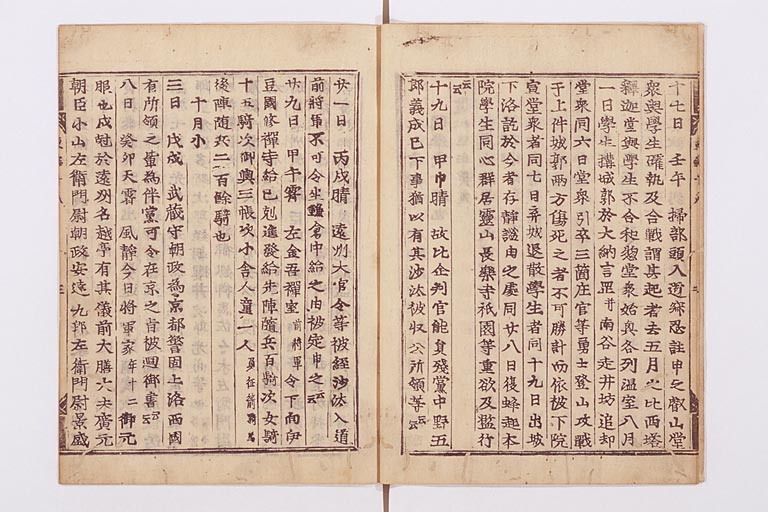 十七日 壬午 掃部頭入道寂忍註申之叡山堂
衆與學生確執及合戰謂其起者去五月之比西塔
釋迦堂與學生不合和惣堂衆始與各別温室八月
一日學生搆城郭於大納言罡并南谷走井坊追却
堂衆同六日堂衆引卒三箇庄官等勇士登山攻戰
于上件城郭兩方傷死之者不可勝計而依被下院
宣堂衆者同七日弃城退散學生者同十九日出城
下洛訖於今者存静謐由之處同廿八日復蜂起本
院學生同心群居靈山長樂寺祇園等重欲及濫行
云云
十九日 甲申晴 故比企判官能員殘黨中野五
郎義成已下事猶以有其沙汰被收公所領等云云
廿一日 丙戌晴 遠州大官令等被經沙汰入道
前將軍不可令坐鎌倉中給之由被定申之云云
廿九日 甲午霽 左金吾禪室前將軍令下向伊
豆國修禪寺給巳剋進發給先陣隨兵百騎次女騎
十五騎次御輿三帳次小舍人童一人負征箭騎馬
後陣隨兵二百餘騎也
十月小
三日 戊戌 武藏守朝政爲京都警固上洛西國
有所領之輩爲伴黨可令在京之旨被廻御書云云
八日 癸卯天霽風静今日將軍家年十二御元
服也戌尅於遠州名越亭有其儀前大膳大夫廣元
朝臣小山左衛門尉朝政安達九郎左衛門尉景盛